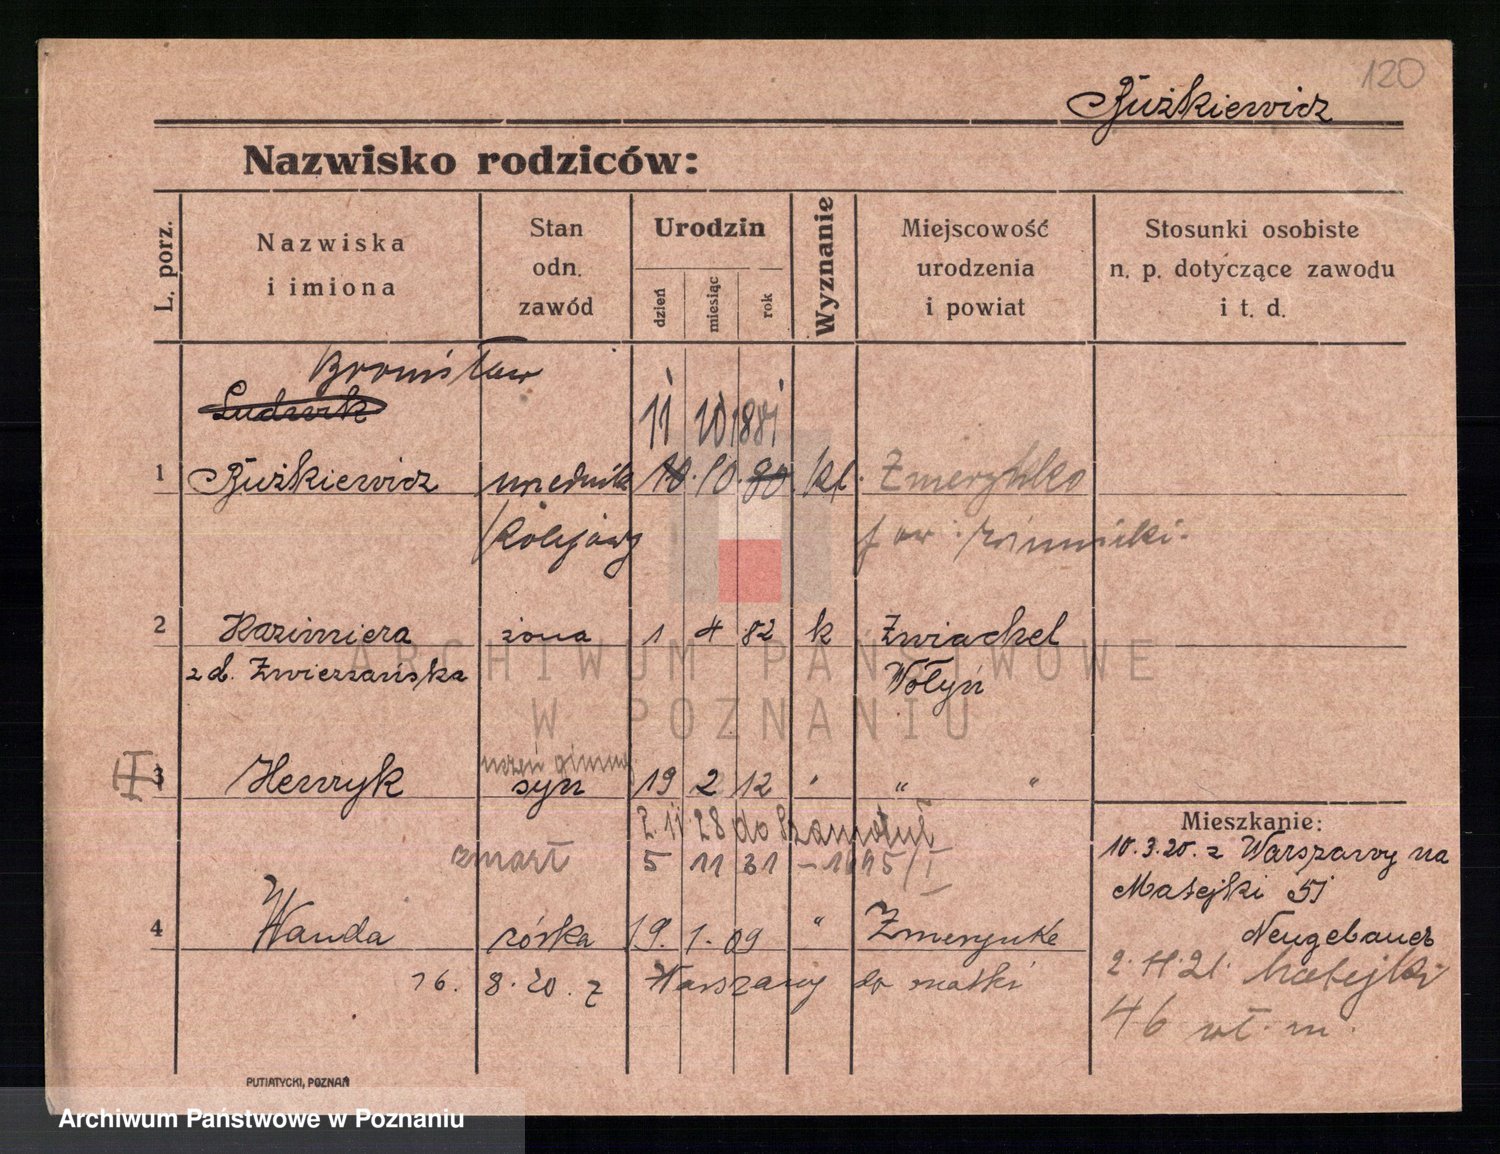 120
Rużkiewicz
Nazwisko rodziców:
L. porz.
Nazwiska
i imiona
Stan
odn.
zawód
Urodzin
dzień
miesiąc
rok
Wyznanie
Miejscowość
urodzenia
i powiat
Stosunki osobiste
n. p. dotyczące zawodu
i t. d.
Bronisław
Ludwik
11 10 1881
1 Rużkiewicz urzednik 10. 10. 80 kt. Żmerynko
Kolejowy pow.
2 Kazimiera żona 1 4 82 k Zwiachel
z d. Zwierzańska Wołyń
uczeń gimn.
3 Henryk syn 19 2 12 " " "
2. 11 28 do Szamotuł
zmarł 5 11 31 – 1695/I
4 Wanda córka 19. 1. 09 " Żmerynke
16. 8. 20. z Warszawy do matki
Mieszkanie:
10.3.20. z Warszawy na
Matejki 51
Neugebauer
2. 11. 21. Matejki
46 wł. m.
PUTIATYCKI, POZNAŃ
ARCHIWUM PAŃSTWOWE
W POZNANIU
Archiwum Państwowe w Poznaniu